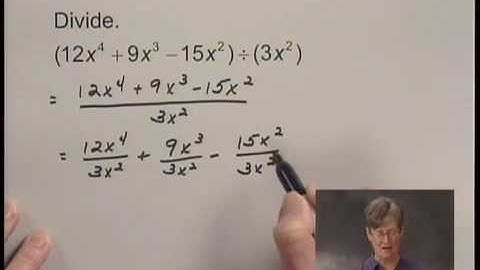 Divide.
(12x⁴ + 9x³ − 15x²) ÷ (3x²)
= 12x⁴ + 9x³ − 15x² / 3x²
= 12x⁴ / 3x² + 9x³ / 3x² − 15x² / 3x²